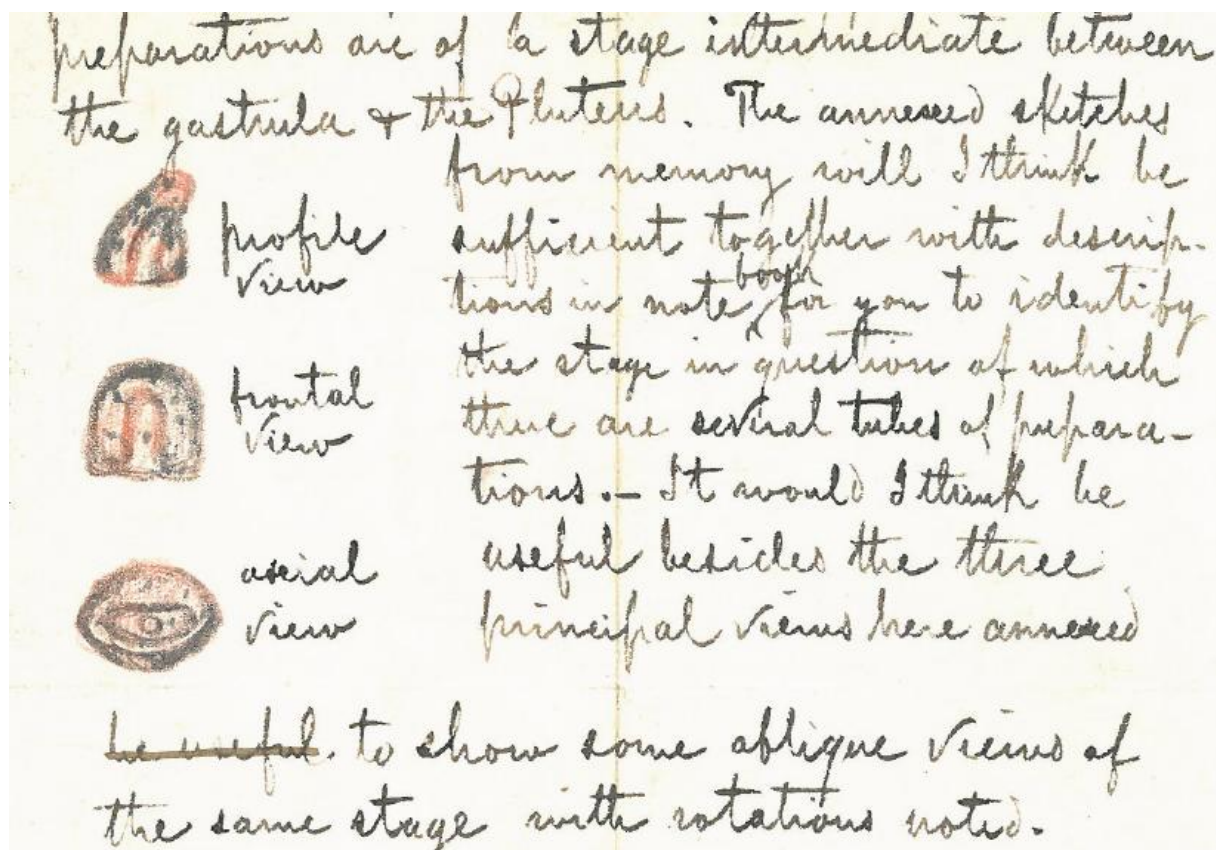 preparations are of a stage intermediate between
the gastrula & the Pluteus. The annexed sketches
from memory will I think be
sufficient together with descrip-
tions in note book for you to identify
the stage in question of which
there are several tubes of prepara-
tions. – It would I think be
useful besides the three
principal views here annexed
profile
view
frontal
view
axial
view
be useful. to show some oblique views of
the same stage with rotations noted.